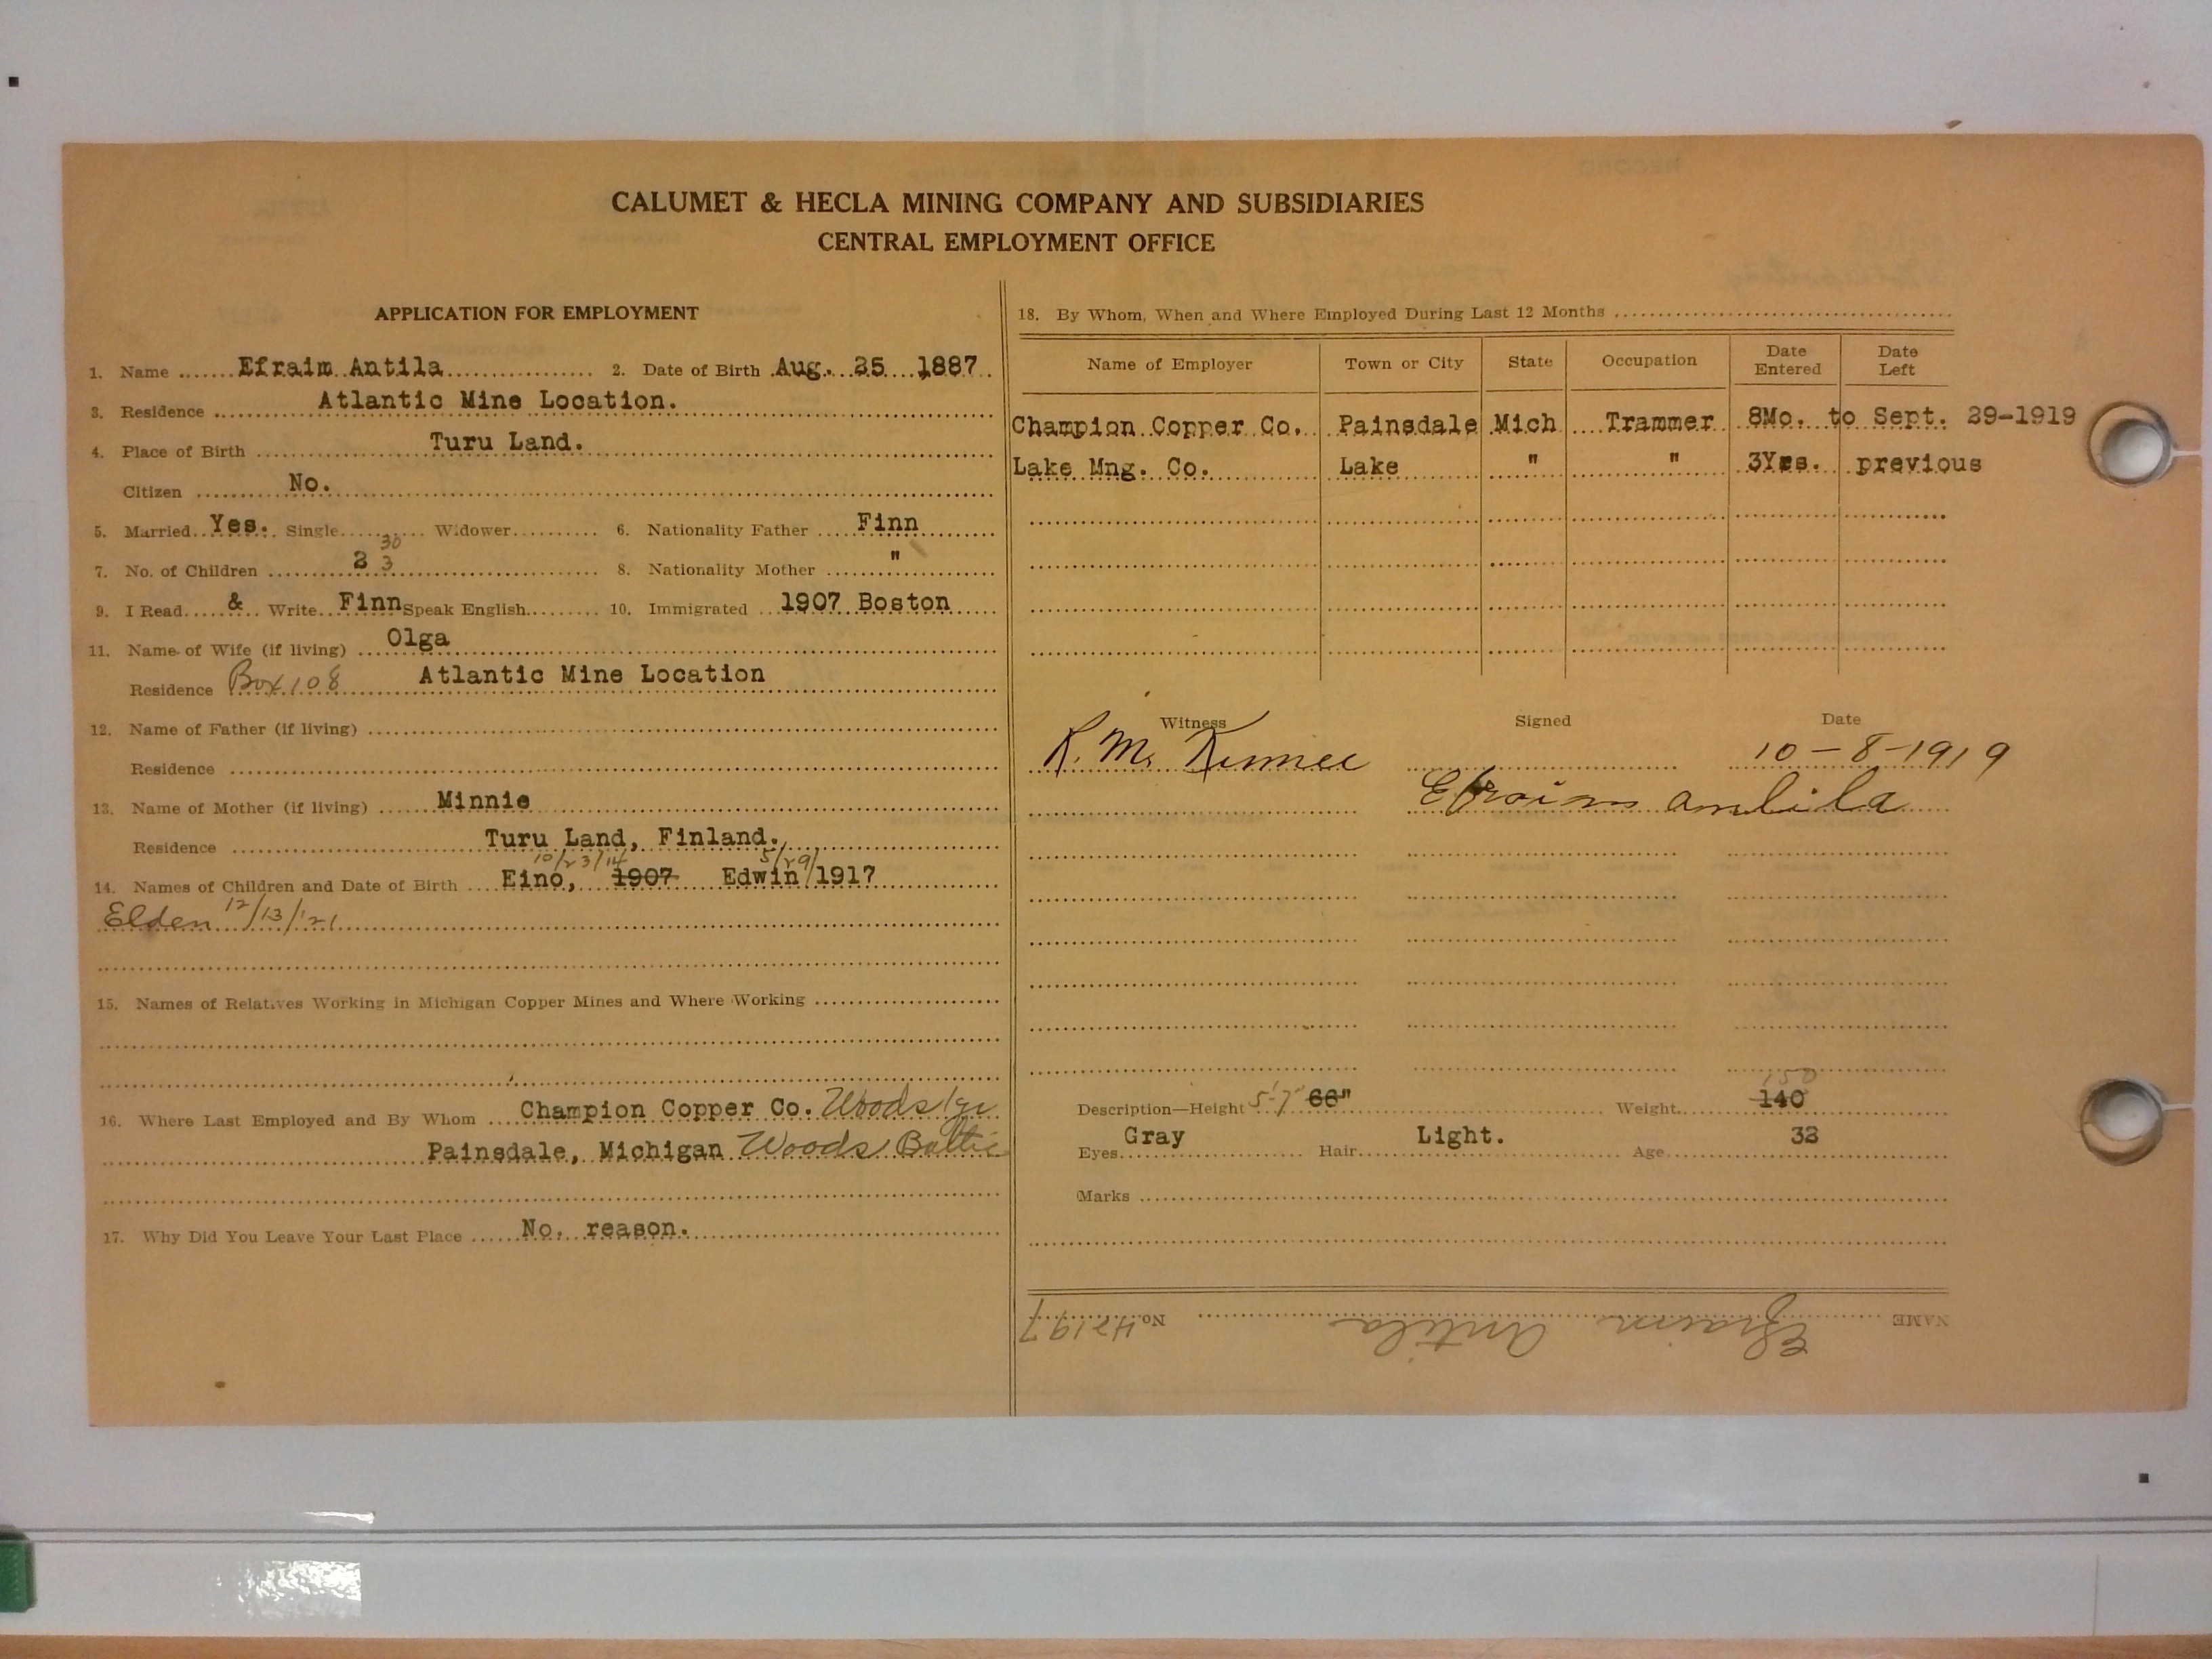 CALUMET & HECLA MINING COMPANY AND SUBSIDIARIES
CENTRAL EMPLOYMENT OFFICE
APPLICATION FOR EMPLOYMENT
1. Name Efraim Antila 2. Date of Birth Aug. 25 1887
3. Residence Atlantic Mine Location.
4. Place of Birth Turu Land.
Citizen No.
5. Married Yes. Single Widower 6. Nationality Father Finn
30
7. No. of Children 2 3 8. Nationality Mother "
9. I Read & Write Finn Speak English 10. Immigrated 1907 Boston
11. Name of Wife (if living) Olga
Residence Box 108 Atlantic Mine Location
12. Name of Father (if living)
Residence
13. Name of Mother (if living) Minnie
Residence Turu Land, Finland.
10/23/14 5/29/
14. Names of Children and Date of Birth Eino, 1907 Edwin 1917
Elden 12/13/'21
15. Names of Relatives Working in Michigan Copper Mines and Where Working
16. Where Last Employed and By Whom Champion Copper Co. Woods
Painsdale, Michigan Woods Baltic
17. Why Did You Leave Your Last Place No. reason.
18. By Whom, When and Where Employed During Last 12 Months
Name of Employer Town or City State Occupation Date Entered Date Left
Champion Copper Co. Painsdale Mich Trammer 8Mo. to Sept. 29-1919
Lake Mng. Co. Lake " " 3Yrs. previous
Witness Signed Date
R. M. 10-8-1919
Efraim Antila
150
Description—Height 5'-7" 66" Weight 140
Eyes Gray Hair Light. Age 32
Marks
NAME Efraim Antila No. 42197